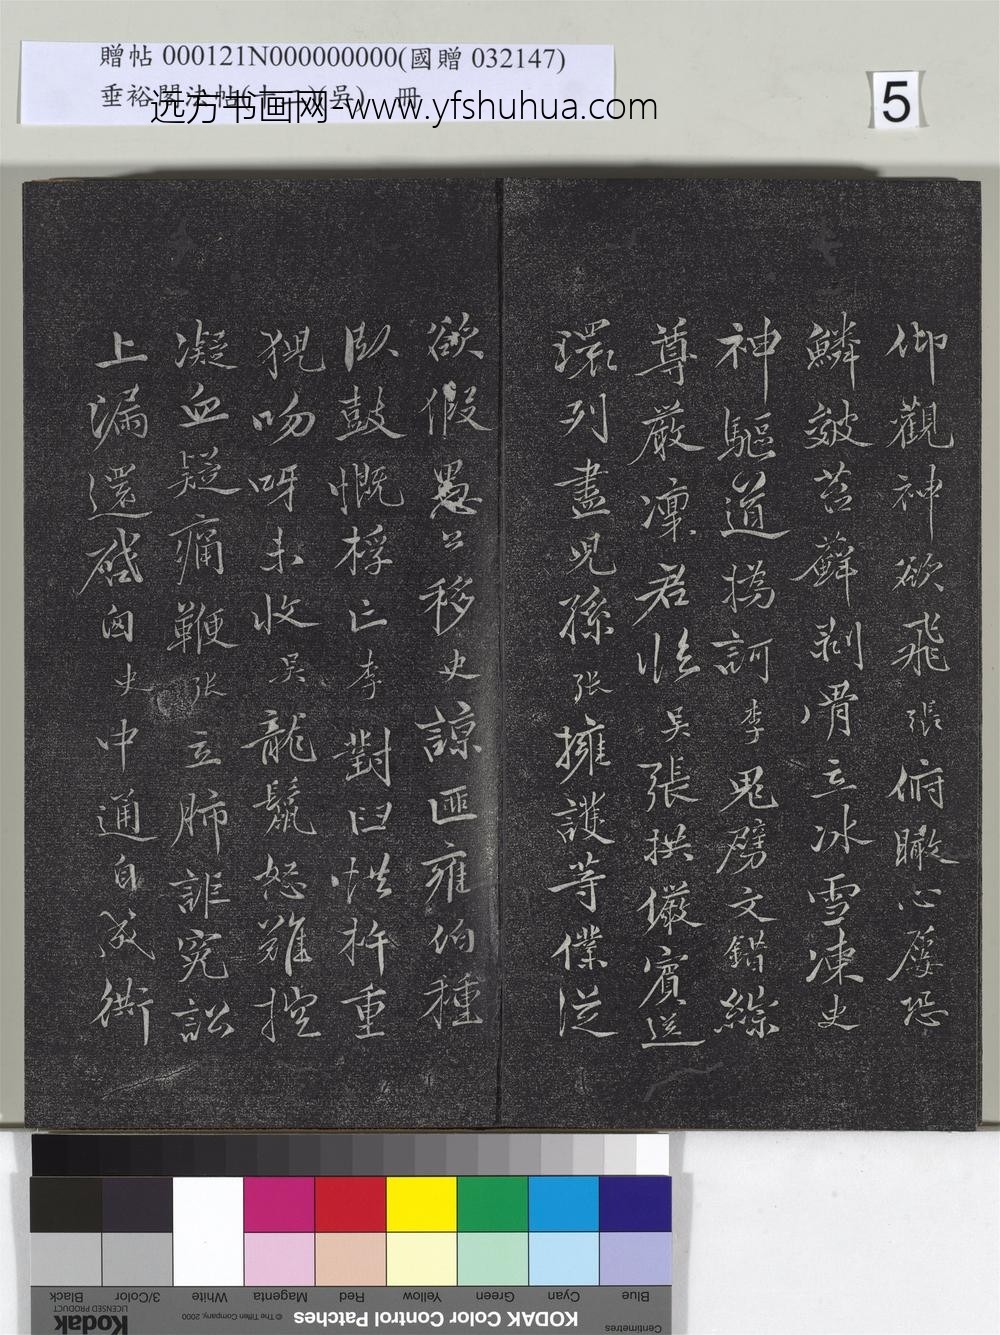 贈帖 000121N000000000(國贈 032147)
垂裕閣法帖(吳) 冊
远方书画网-www.yfshuhua.com
5
仰觀神欲飛張俯瞰心屡恐
鱗皴苔蘚剥骨立冰雪凍史
神驅道撝訶李鬼劈文錯綜
尊嚴凜君臨吳張拱儼賓送
環列盡兒孫張擁護等僕從
欲假愚公移史諒匪雍伯種
臥鼓慨桴亡李對臼恍杵重
猊吻呀未收吳龍鬛怒難控
凝血疑痛鞭張立肺詎究訟
上漏還啟囪史中通自成衖
Blue
Cyan
Green
Yellow
Red
Magenta
White
3/Color
Black
Centimetres
KODAK Color Control Patches
© The Tiffen Company, 2000
Kodak
LICENSED PRODUCT